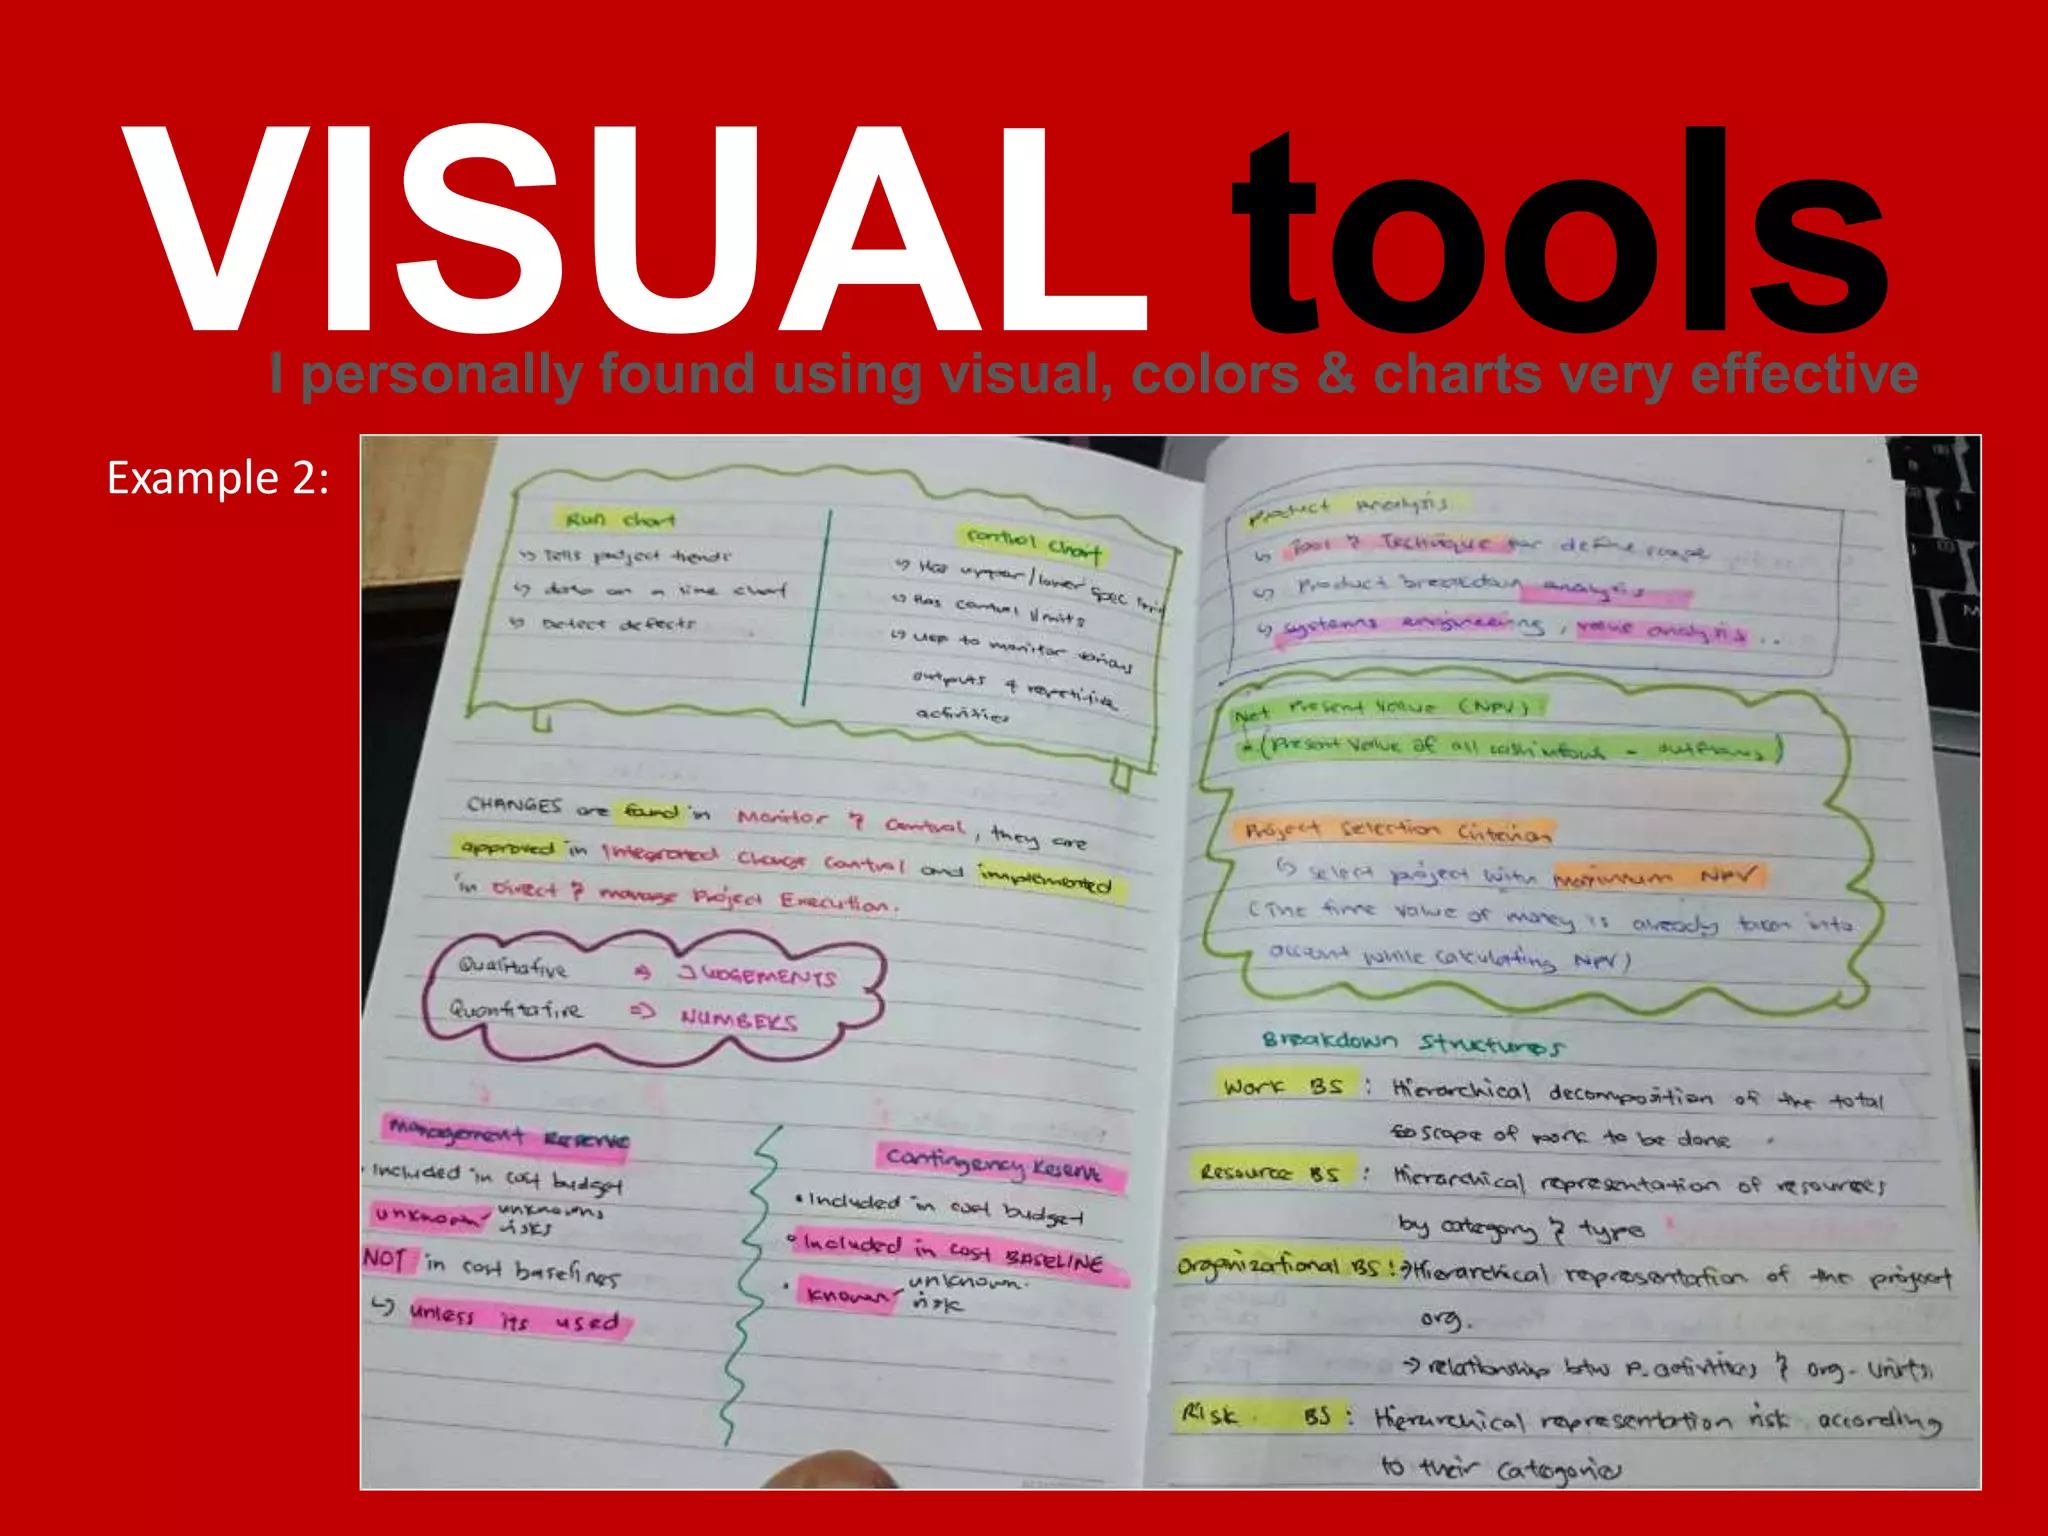 VISUAL tools
I personally found using visual, colors & charts very effective
Example 2:
Run chart
↳ Tells project trends
↳ data on a time chart
↳ Detect defects
control chart
↳ Has upper/lower spec limit
↳ Has control limits
↳ Use to monitor various
outputs & repetitive
activities
CHANGES are found in Monitor & Control, they are
approved in Integrated Change Control and implemented
in Direct & manage Project Execution.
Qualitative ⇒ JUDGEMENTS
Quantitative ⇒ NUMBERS
Management Reserve
• Included in cost budget
unknown unknowns
risks
NOT in cost baselines
↳ unless its used
Contingency Reserve
• Included in cost budget
• Included in cost BASELINE
• known unknown
risk
Product Analysis
↳ Tool & Technique for define scope
↳ Product breakdown analysis
↳ systems engineering, value analysis ..
Net Present Value (NPV)
(Present value of all cash inflows - outflows)
Project Selection Criterion
↳ select project with maximum NPV
(The time value of money is already taken into
account while calculating NPV)
Breakdown Structures
Work BS : Hierarchical decomposition of the total
scope of work to be done
Resource BS : Hierarchical representation of resources
by category & type
Organizational BS : → Hierarchical representation of the project
org.
→ relationship btw P. activities & org. units.
Risk BS : Hierarchical representation risk according
to their categories